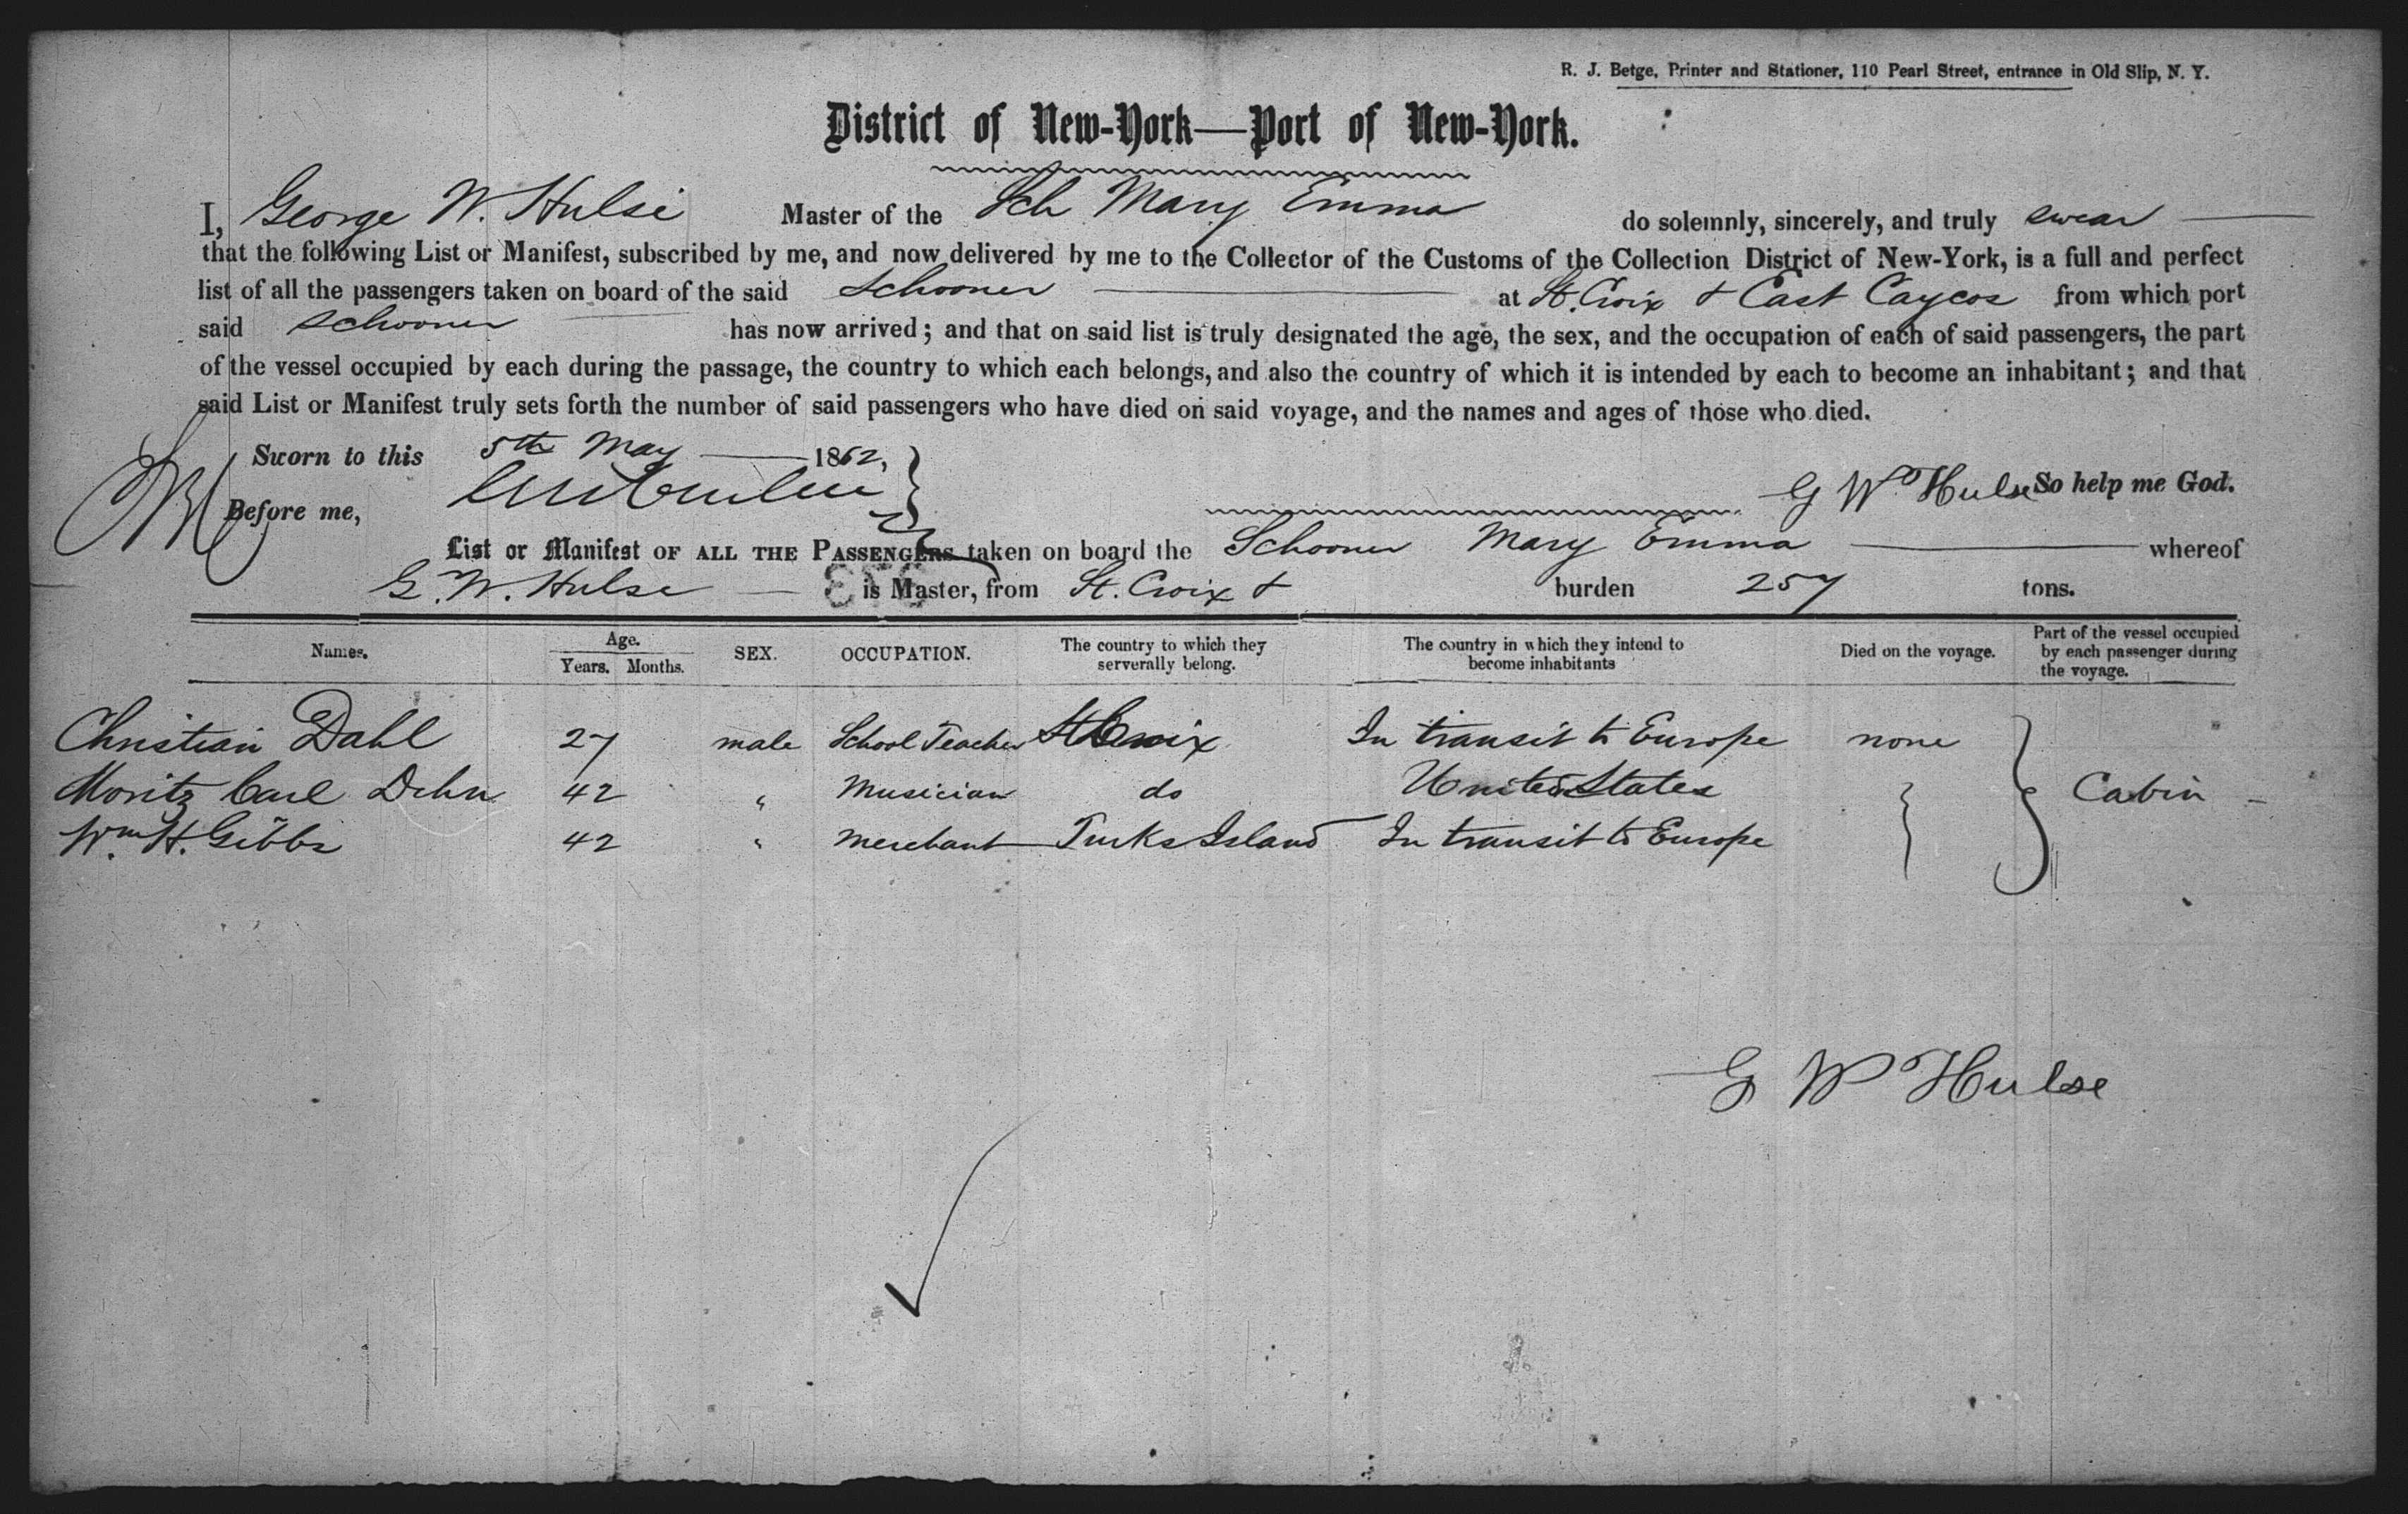 R. J. Betge, Printer and Stationer, 110 Pearl Street, entrance in Old Slip, N. Y.
District of New-York—Port of New-York.
I, George W. Hulse Master of the Sch Mary Emma do solemnly, sincerely, and truly swear
that the following List or Manifest, subscribed by me, and now delivered by me to the Collector of the Customs of the Collection District of New-York, is a full and perfect
list of all the passengers taken on board of the said Schooner at St. Croix & East Caycos from which port
said schooner has now arrived; and that on said list is truly designated the age, the sex, and the occupation of each of said passengers, the part
of the vessel occupied by each during the passage, the country to which each belongs, and also the country of which it is intended by each to become an inhabitant; and that
said List or Manifest truly sets forth the number of said passengers who have died on said voyage, and the names and ages of those who died.
Sworn to this 5th May 1862,
Before me, G W Hulse So help me God.
List or Manifest OF ALL THE PASSENGERS taken on board the Schooner Mary Emma whereof
G. W. Hulse is Master, from St. Croix & burden 257 tons.
Names. Age. Years. Months. SEX. OCCUPATION. The country to which they serverally belong. The country in which they intend to become inhabitants Died on the voyage. Part of the vessel occupied by each passenger during the voyage.
Christian Dahl 27 male School Teacher St Croix In transit to Europe none
Moritz Carl Dehn 42 " Musician do United States Cabin
Wm. H. Gibbs 42 " Merchant Turks Island In transit to Europe
G W Hulse